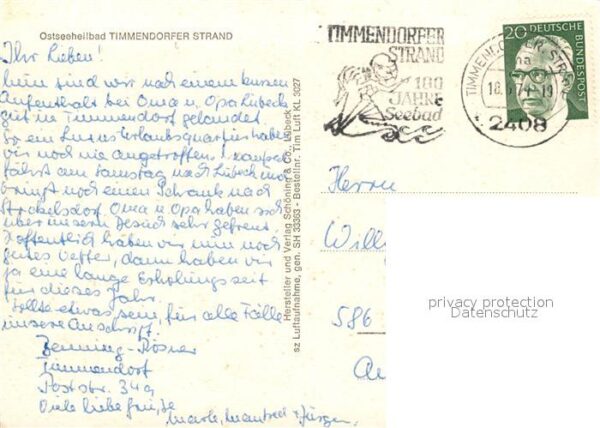 Ostseeheilbad TIMMENDORFER STRAND
Ihr Lieben!
nun sind wir nach einem kurzen
Aufenthalt bei Oma u. Opa Lübeck
gut in Timmendorf gelandet.
So ein Luxus Urlaubsquartier haben
wir noch nie angetroffen.
fährt am Samstag nach Lübeck und
bringt noch einen Schrank nach
Strokelsdorf. Oma u. Opa haben sich
über unseren Besuch sehr gefreut.
Hoffentlich haben wir nun noch
gutes Wetter, dann haben wir
ja eine lange Erholungszeit
für dieses Jahr.
Sollte etwas sein, für alle Fälle
unsere Anschrift.
Benning-Rösner
Timmendorf
Poststr. 34a
Viele liebe Grüße
Manfred + Jürgen
Hersteller und Verlag Schöning & Co., Lübeck
sz Luftaufnahme, gen. SH 33363 - Bestellnr. Tim Luft KL 3027
TIMMENDORFER
STRAND
100
JAHRE
Seebad
TIMMENDORFER STR
18 74-19
2408
20
DEUTSCHE
BUNDESPOST
Herrn
Will
586
privacy protection
Datenschutz